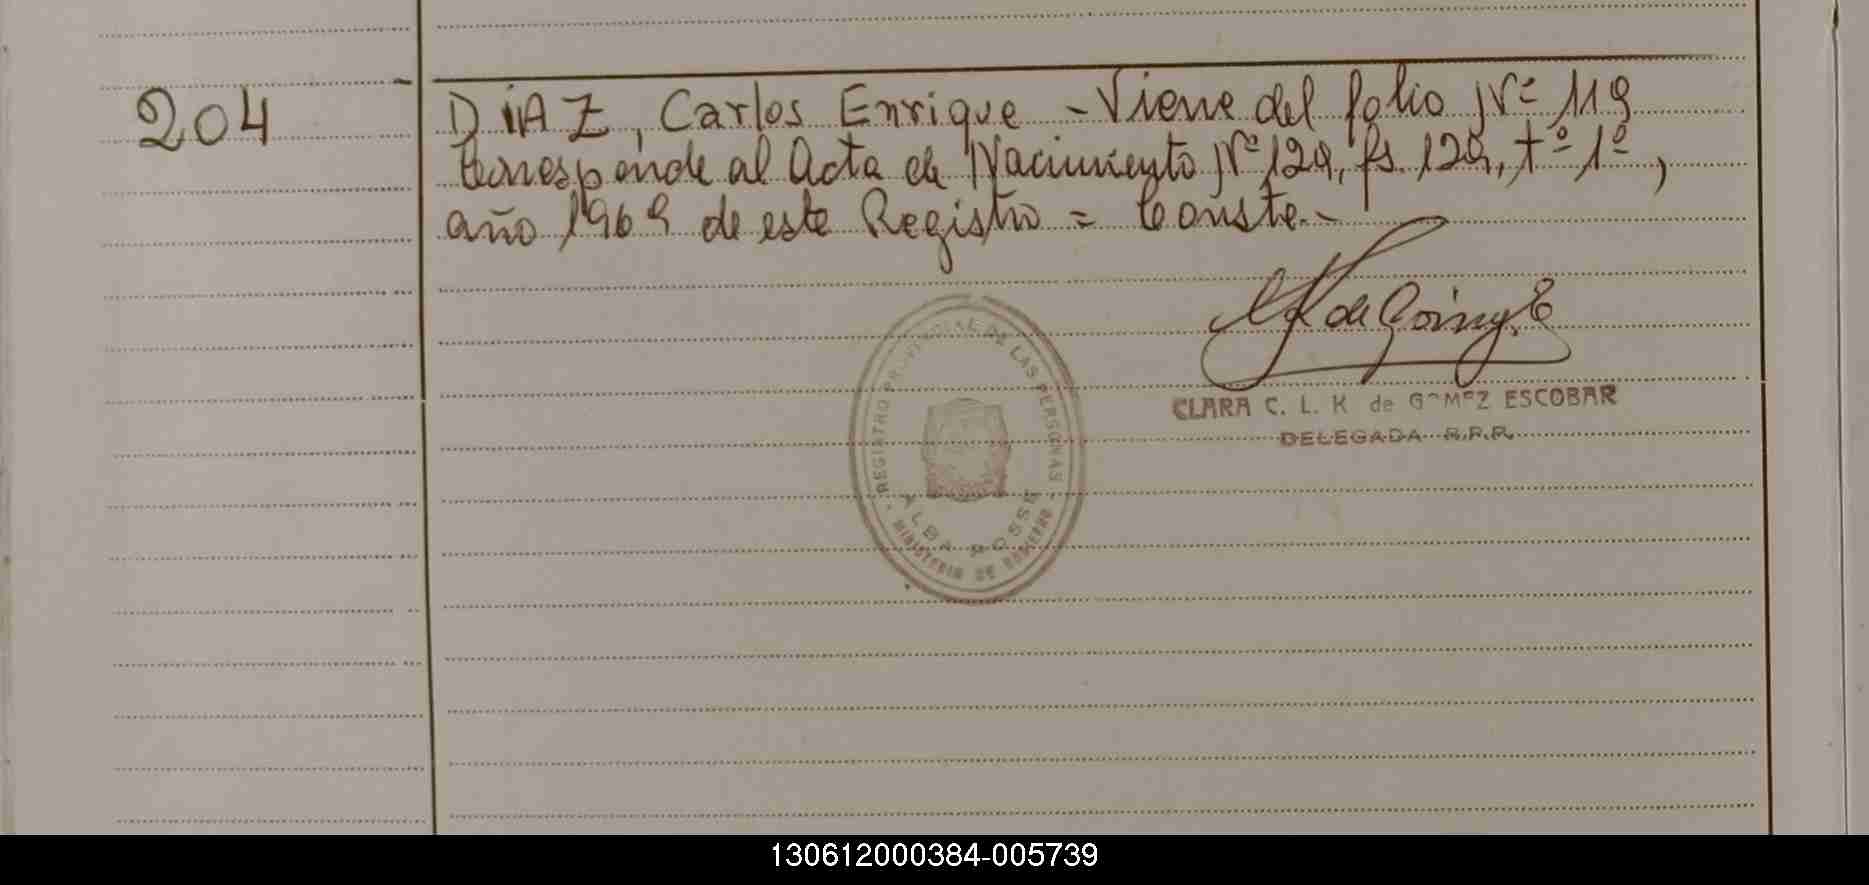 204
DIAZ, Carlos Enrique - Viene del folio Nº 119
Corresponde al Acta de Nacimiento Nº 129, fs. 129, tº 1º,
año 1969 de este Registro = Conste.-
CLARA C. L. K de GOMEZ ESCOBAR
DELEGADA R.P.P.
REGISTRO PROVINCIAL DE LAS PERSONAS
ALBA POSSE
MINISTERIO DE GOBIERNO
130612000384-005739